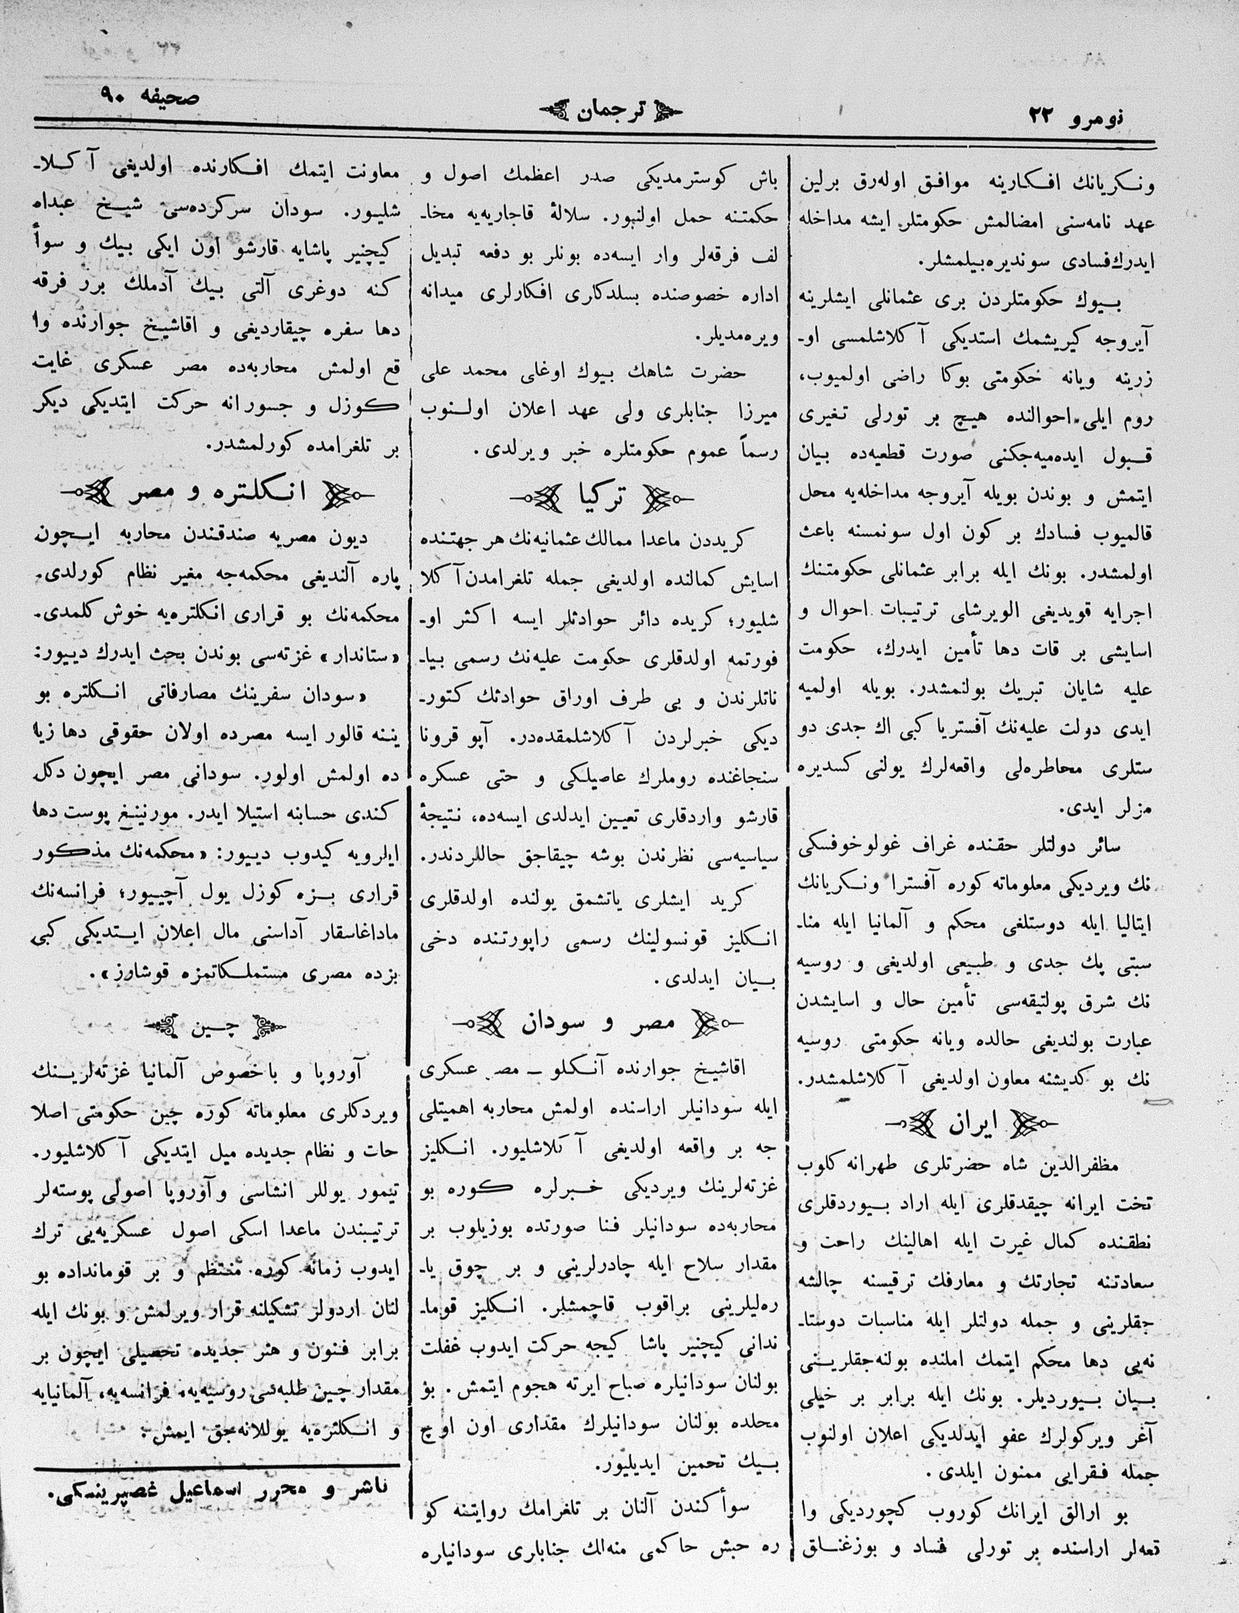 نومرو ٢٢
ترجمان
صحیفه ٩٠
ونكریانك افكارینه موافق اوله‌رق برلین
عهد نامه‌سنی امضالمش حكومتلر ایشه مداخله
ایدرك فسادی سوندیره‌بیلمشلر.
بیوك حكومتلردن بری عثمانلی ایشلرینه
آیروجه كیریشمك استدیكی آكلاشلمسی او-
زرینه ویانه حكومتی بوكا راضی اولمیوب،
روم ایلی احوالنده هیچ بر تورلی تغیری
قبول ایده‌میه‌جكنی صورت قطعیه‌ده بیان
ایتمش و بوندن بویله آیروجه مداخله‌یه محل
قالمیوب فسادك بر كون اول سونمسنه باعث
اولمشدر. بونك ایله برابر عثمانلی حكومتنك
اجرایه قویدیغی الویرشلی ترتیبات احوال و
اسایشی بر قات دها تأمین ایدرك، حكومت
علیه شایان تبریك بولنمشدر. بویله اولمیه
ایدی دولت علیه‌نك آفستریا كبی اك جدی دو
ستلری محاطره‌لی واقعه‌لرك یولنی كسدیره
مزلر ایدی.
سائر دولتلر حقنده غراف غولوخوفسكی
نك ویردیكی معلوماته كوره آفسترا ونكریانك
ایتالیا ایله دوستلغی محكم و آلمانیا ایله منا-
سبتی پك جدی و طبیعی اولدیغی و روسیه
نك شرق پولتیقه‌سی تأمین حال و اسایشدن
عبارت بولندیغی حالده ویانه حكومتی روسیه
نك بو كدیشنه معاون اولدیغی آكلاشلمشدر.
ایران
مظفرالدین شاه حضرتلری طهرانه كلوب
تخت ایرانه چیقدقلری ایله اراد بیوردقلری
نطقنده كمال غیرت ایله اهالینك راحت و
سعادتنه تجارتك و معارفك ترقیسنه چالشه
جقلرینی و جمله دولتلر ایله مناسبات دوستا-
نه‌یی دها محكم ایتمك املنده بولنه‌جقلرینی
بیان بیوردیلر. بونك ایله برابر بر خیلی
آغر ویركولرك عفو ایدلدیكی اعلان اولنوب
جمله فقرایی ممنون ایلدی.
بو ارالق ایرانك كوروب كچوردیكی وا
تعه‌لر اراسنده بر تورلی فساد و بوزغنلق
باش كوسترمدیكی صدر اعظمك اصول و
حكمتنه حمل اولنیور. سلالهٔ قاجاریه‌یه مخا-
لف فرقه‌لر وار ایسه‌ده بونلر بو دفعه تبدیل
اداره خصوصنده بسلدكاری افكارلری میدانه
ویره‌مدیلر.
حضرت شاهك بیوك اوغلی محمد علی
میرزا جنابلری ولی عهد اعلان اولنوب
رسماً عموم حكومتلره خبر ویرلدی.
تركیا
كریددن ماعدا ممالك عثمانیه‌نك هر جهتنده
اسایش كمالنده اولدیغی جمله تلغرامدن آكلا
شلیور؛ كریده دائر حوادثلر ایسه اكثر او-
فورتمه اولدقلری حكومت علیه‌نك رسمی بیا-
ناتلرندن و بی طرف اوراق حوادثك كتور-
دیكی خبرلردن آكلاشلمقده‌در. آپو قرونا
سنجاغنده روملرك عاصیلكی و حتی عسكره
قارشو واردقلری تعیین ایدلدی ایسه‌ده، نتیجهٔ
سیاسیه‌سی نظرندن بوشه چیقاجق حاللردندر.
كرید ایشلری یاتشمق یولنده اولدقلری
انكلیز قونسولینك رسمی راپورتنده دخی
بیان ایدلدی.
مصر و سودان
اقاشیخ جوارنده آنكلو – مصر عسكری
ایله سودانیلر اراسنده اولمش محاربه اهمیتلی
جه بر واقعه اولدیغی آكلاشلیور. انكلیز
غزته‌لرینك ویردیكی خبرلره كوره بو
محاربه‌ده سودانیلر فنا صورتده بوزیلوب بر
مقدار سلاح ایله چادرلرینی و بر چوق یا-
ره‌لیلرینی براقوب قاچمشلر. انكلیز قوما-
ندانی كیچنیر پاشا كیجه حركت ایدوب غفلت
بولنان سودانیلره صباح ایرته هجوم ایتمش. بو
محلده بولنان سودانیلرك مقداری اون اوچ
بیك تحمین ایدیلیور.
سوآكندن آلنان بر تلغرامك روایتنه كو
ره حبش حاكمی منه‌لك جنابلری سودانیاره
معاونت ایتمك افكارنده اولدیغی آكلا-
شلیور. سودان سركرده‌سی شیخ عبداﷲ
كیچنیر پاشایه قارشو اون ایكی بیك و سوأ
كنه دوغری آلتی بیك آدملك برر فرقه
دها سفره چیقاردیغی و اقاشیخ جوارنده وا
قع اولمش محاربه‌ده مصر عسكری غایت
كوزل و جسورانه حركت ایتدیكی دیكر
بر تلغرامده كورلمشدر.
انكلتره و مصر
دیون مصریه صندقندن محاربه ایچون
پاره آلندیغی محكمه‌جه مغیر نظام كورلدی.
محكمه‌نك بو قراری انكلتره‌یه خوش كلمدی.
«ستاندار» غزته‌سی بوندن بحث ایدرك دییور:
«سودان سفرینك مصارفاتی انكلتره بو
یننه قالور ایسه مصرده اولان حقوقی دها زیا
ده اولمش اولور. سودانی مصر ایچون دكل
كندی حسابنه استیلا ایدر. مورنینغ پوست دها
ایلرویه كیدوب دییور: «محكمه‌نك مذكور
قراری بزه كوزل یول آچییور؛ فرانسه‌نك
ماداغاسقار آداسنی مال اعلان ایتدیكی كبی
بزده مصری مستملكاتمزه قوشارز».
چین
آوروپا و باخصوص آلمانیا غزته‌لرینك
ویردكلری معلوماته كوره چین حكومتی اصلا
حات و نظام جدیده میل ایتدیكی آكلاشلیور.
تیمور یوللر انشاسی و آوروپا اصولی پوسته‌لر
ترتیبندن ماعدا اسكی اصول عسكریه‌یی ترك
ایدوب زمانه كوره منتظم و بر قومانداده بو
لنان اردولر تشكیلنه قرار ویرلمش و بونك ایله
برابر فنون و هنر جدیده تحصیلی ایچون بر
مقدار چین طلبه‌سی روسیه‌یه، فرانسه‌یه، آلمانیایه
و انكلتره‌یه یوللانه‌جق ایمش.
ناشر و محرر اسماعیل غصپرینسكی.